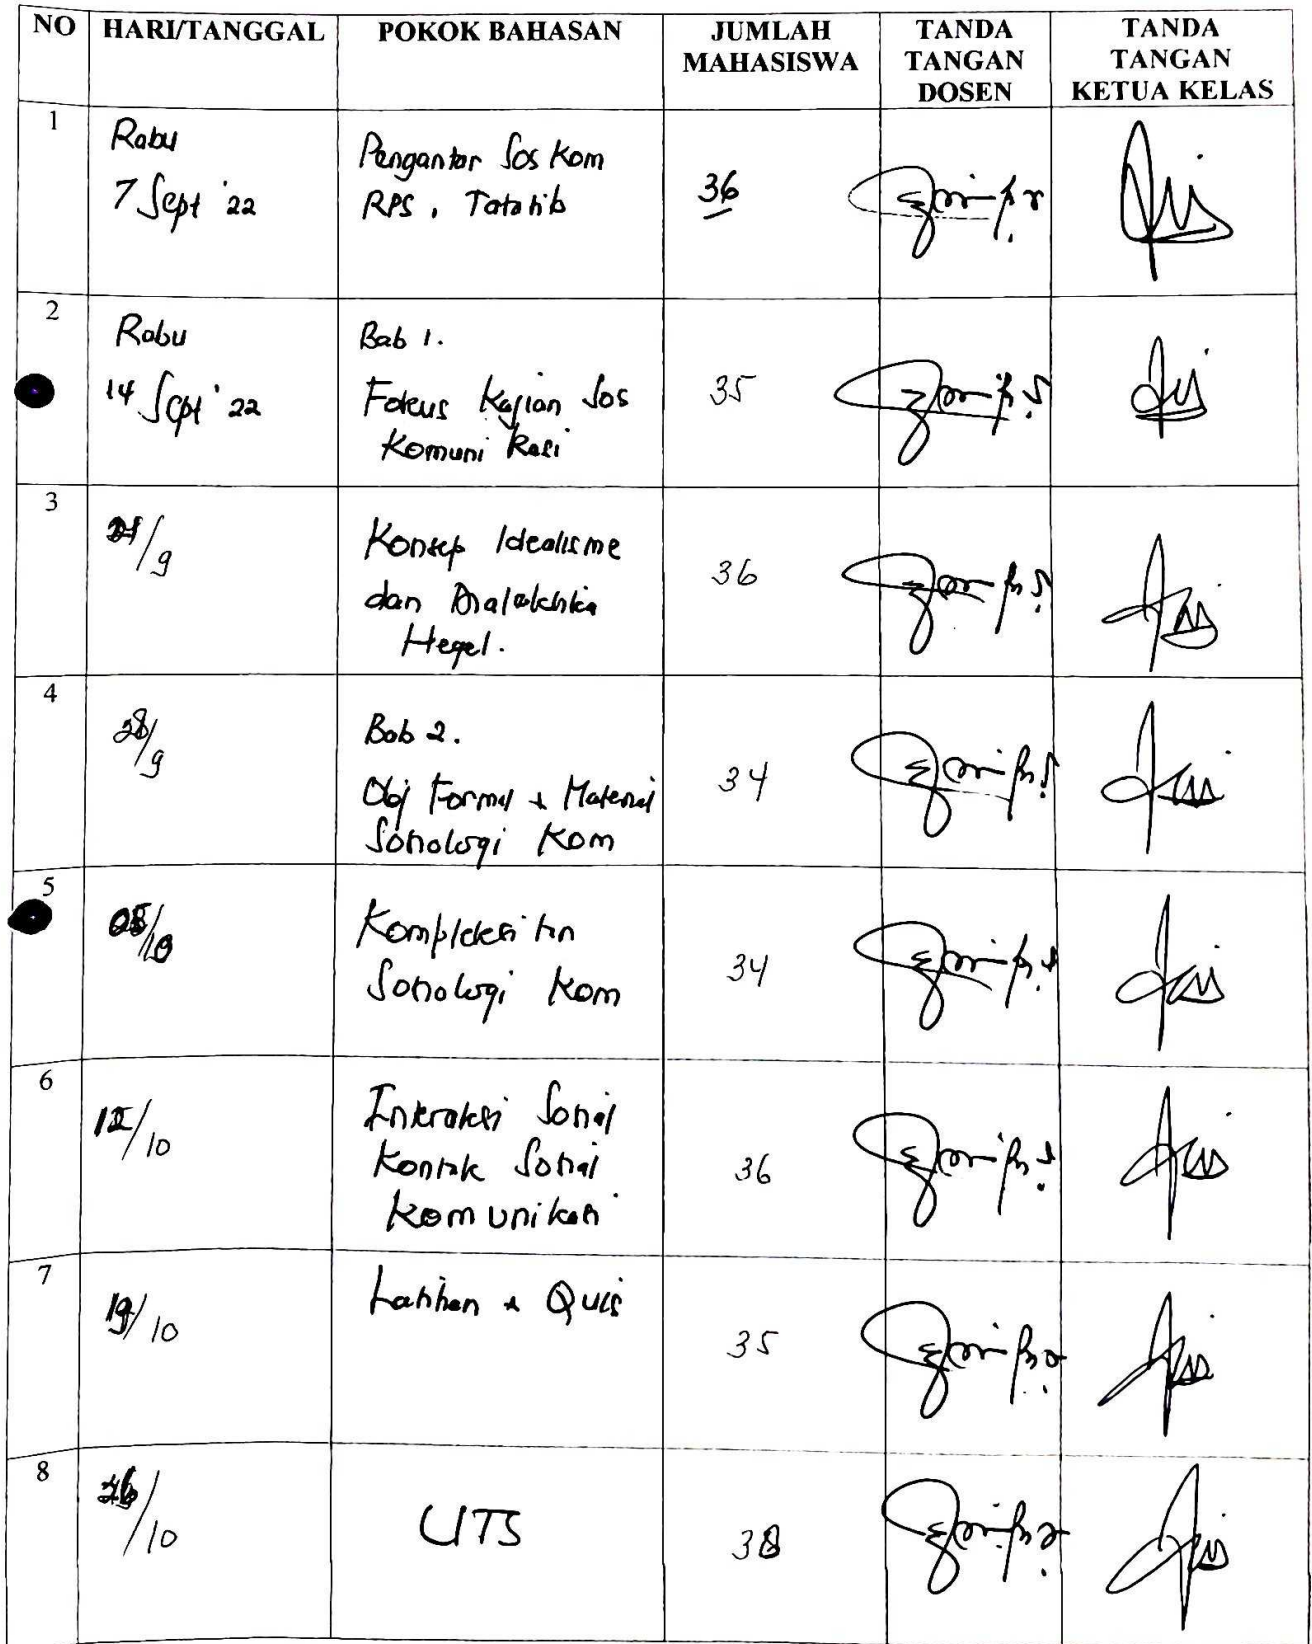 NO HARI/TANGGAL POKOK BAHASAN JUMLAH MAHASISWA TANDA TANGAN DOSEN TANDA TANGAN KETUA KELAS
1
Rabu
7 Sept '22
Pengantar Sos Kom
RPS, Tatatib
36
2
Rabu
14 Sept '22
Bab 1.
Fokus Kajian Sos
Komunikasi
35
3
21/9
Konsep Idealisme
dan Dialektika
Hegel.
36
4
28/9
Bab 2.
Obj Formal + Material
Sosiologi Kom
34
5
05/10
Kompleksitas
Sosiologi Kom
34
6
12/10
Interaksi Sosial
Kontak Sosial
Komunikasi
36
7
19/10
Latihan + Quis
35
8
26/10
UTS
38